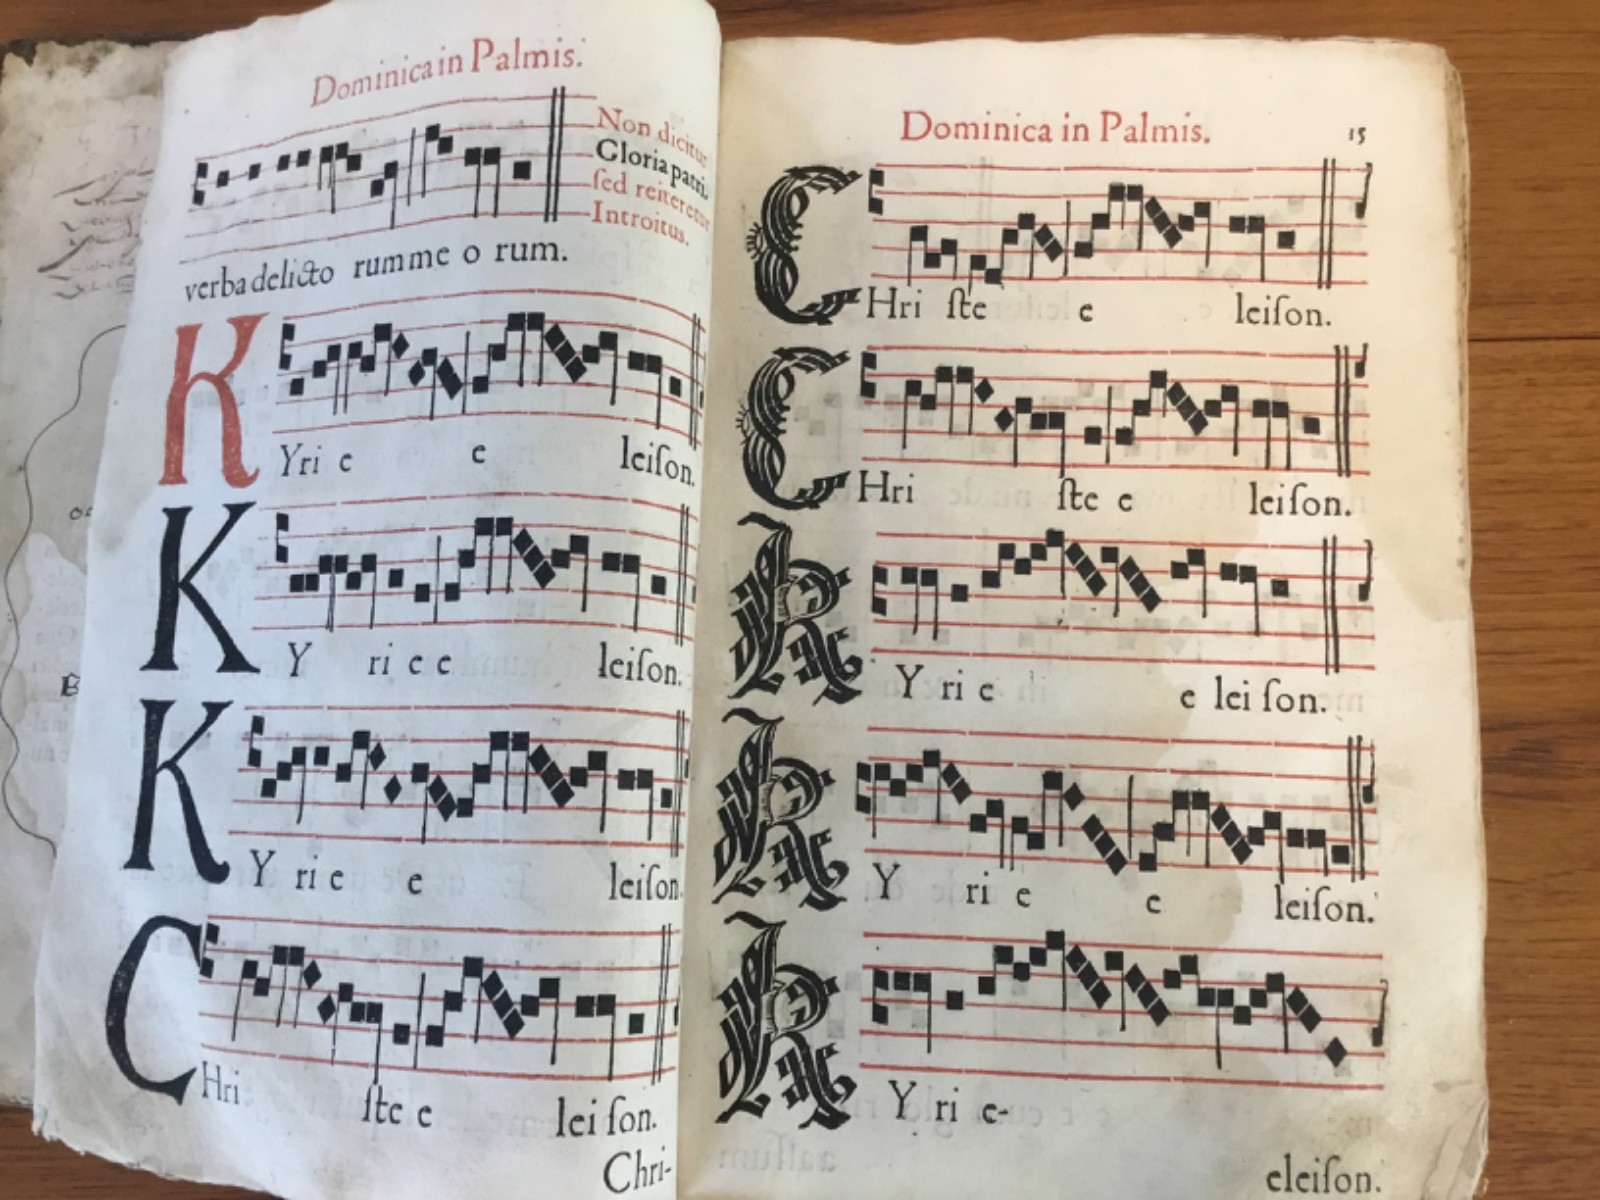 Dominica in Palmis.
Non dicitur
Gloria patri
sed reiteretur
Introitus.
verba delicto rumme o rum.
KYri e e leison.
KY ri e e leison.
KY ri e e leison.
CHri ste e lei son.
Chri-
Dominica in Palmis. 15
CHri ste e leison.
CHri ste e leison.
KY ri e e lei son.
KY ri e e leison.
KY ri e-
eleison.